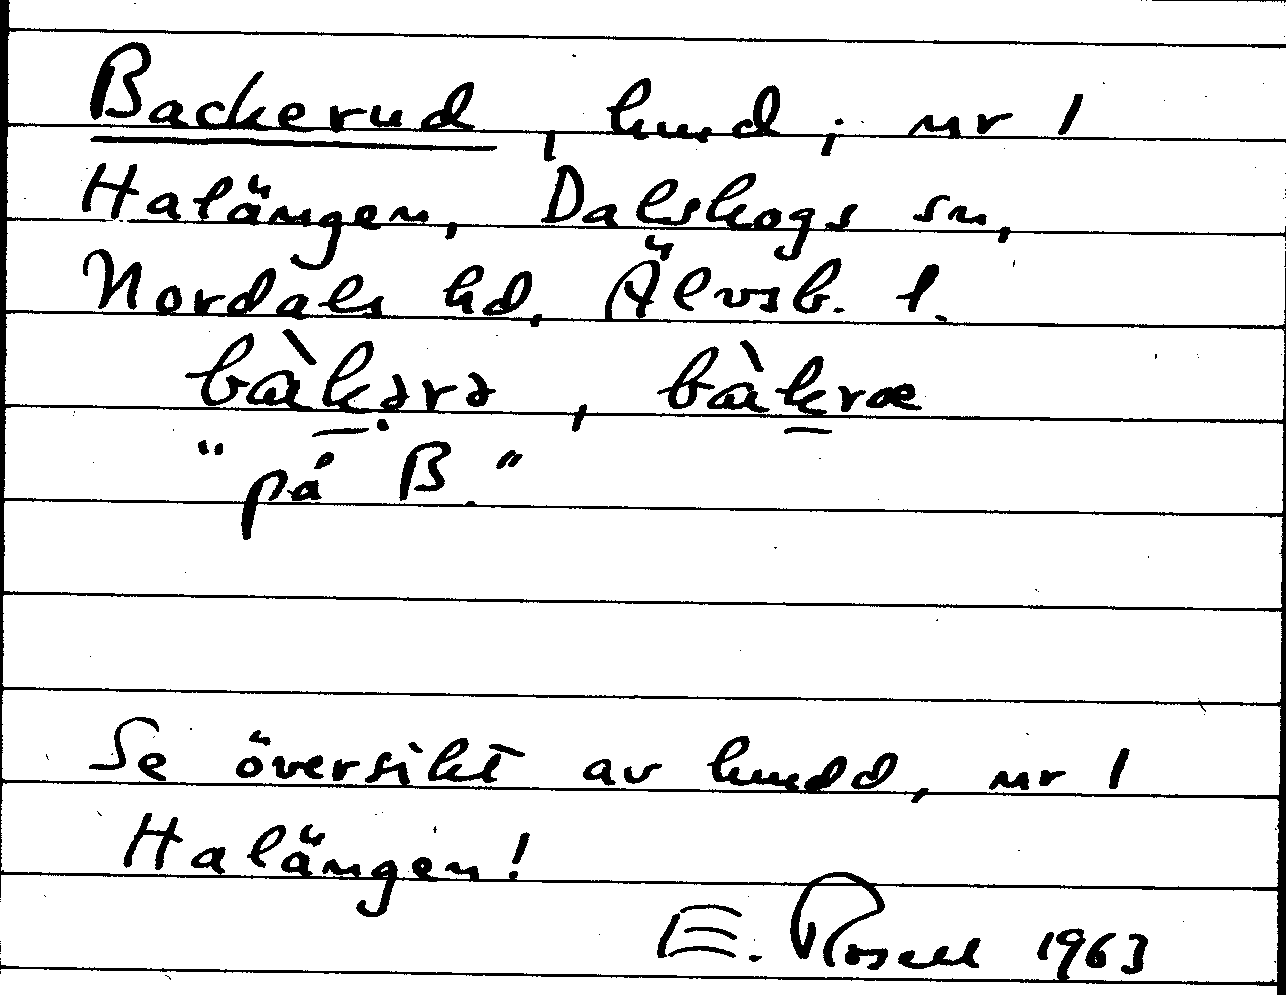 Backerud, hmd; nr 1
Halängen, Dalskogs sn,
Nordals hd. Älvsb. l.
bàk̲ərə, bàk̲ræ
"på B."
Se översikt av hmdd, nr 1
Halängen!
E. Rosell 1963